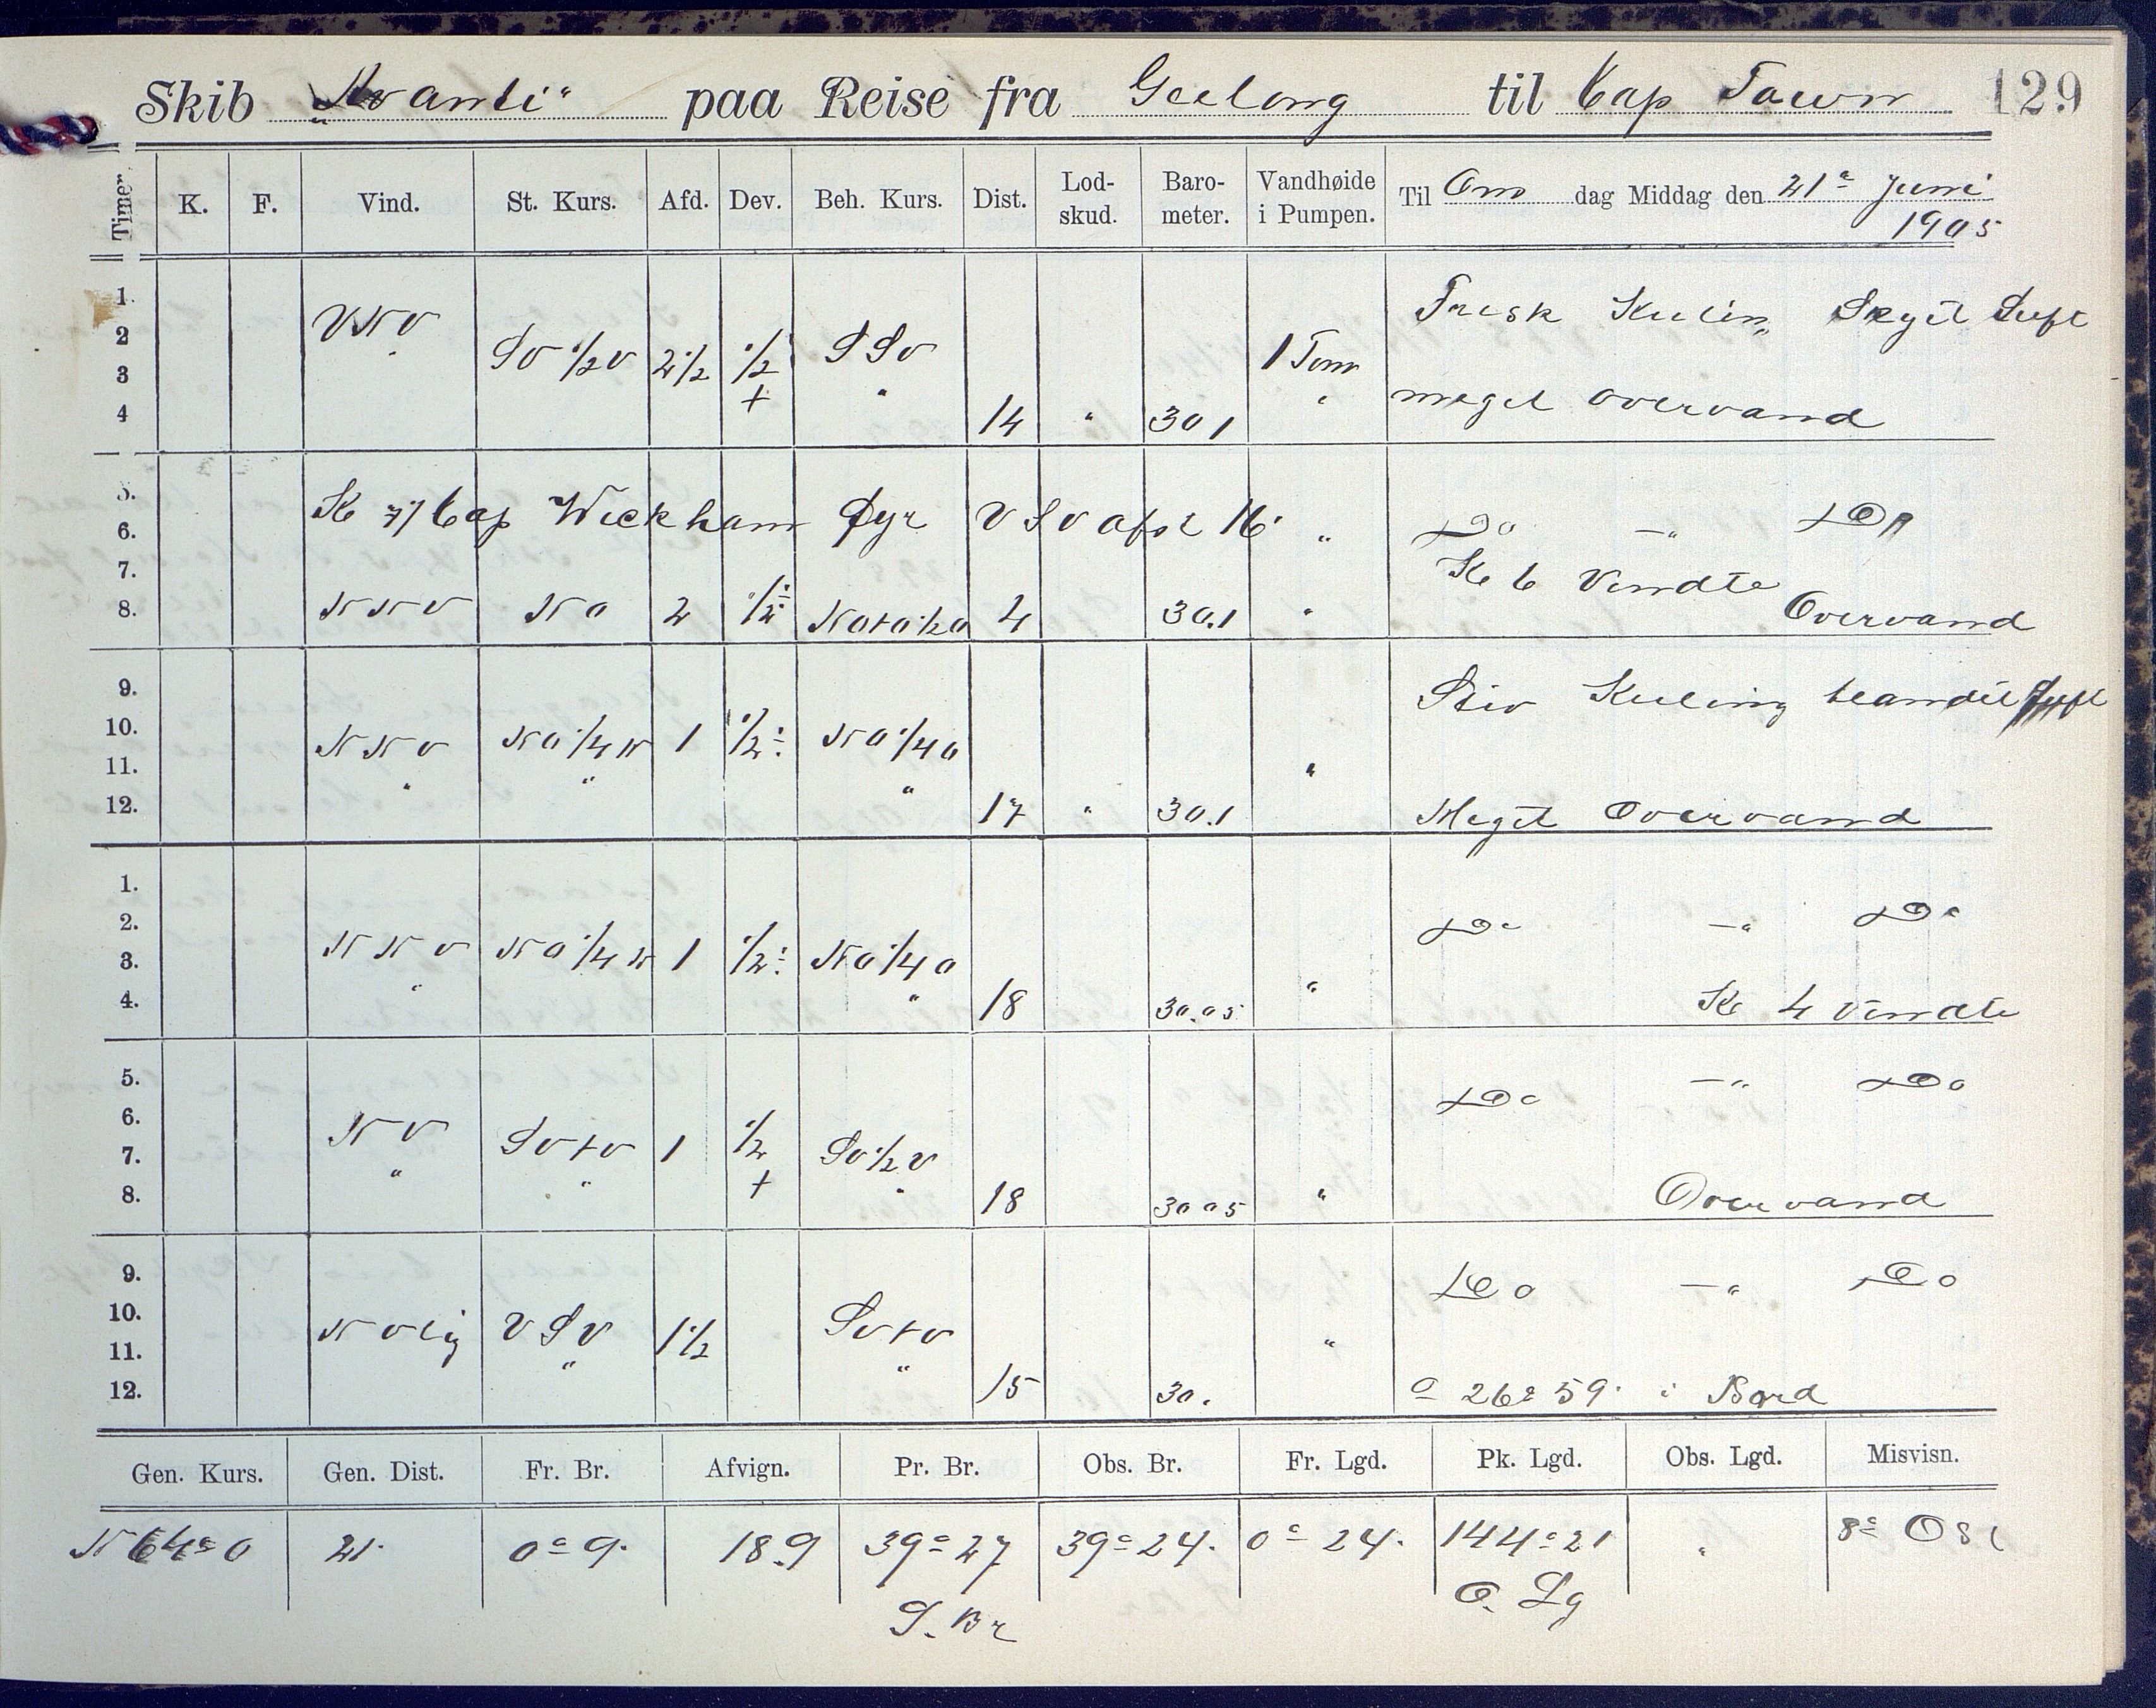 Skib „Avanti" paa Reise fra Geelong til Cap Town 129
Timer. K. F. Vind. St. Kurs. Afd. Dev. Beh. Kurs. Dist. Lod-skud. Baro-meter. Vandhøide i Pumpen. Til Ons dag Middag den 21de Juni
1905
1. VNV Frisk Kuling Skyet Luft
2 SV 1/2 V 2 1/2 1/2 SSV 1 Tom
3 + "
4 14 " 30 1 " meget overvand
5.
6. Kl 7 Cap Wickham Fyr VSV afst 16' " Do —"— Do
7. Kl 6 Vendte
8. NNV NO 2 1/2 ÷ NOtO 1/2 O 4 30.1 " Overvand
9. Stiv Kuling blandet Luft
10. NNV NO 1/4 N 1 1/2 ÷ NO 1/4 O
11. " " " "
12. 17 " 30.1 Meget Overvand
1.
2. Do —"— Do
3. NNV NO 1/4 N 1 1/2 ÷ NO 1/4 O
4. " " 18 30.05 " Kl 4 Vendte
5. Do —"— Do
6. NV
7. " SVtV 1 1/2 SV 1/2 V
8. " + " 18 30 05 " Overvand
9. Do —"— Do
10. NVlig VSV 1 1/2 SVtV
11. " " "
12. 15 30. 26° 59' i Bord
Gen. Kurs. Gen. Dist. Fr. Br. Afvign. Pr. Br. Obs. Br. Fr. Lgd. Pk. Lgd. Obs. Lgd. Misvisn.
N 64° O 21' 0° 9' 18.9 39° 27 39° 24' 0° 24' 144° 21 " 8° Ost
S. Br O. Lg